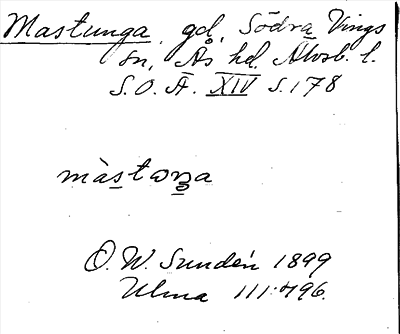 Mastunga, gd, Södra Vings
sn, Ås hd. Älvsb. l.
S.O.Ä. XIV s.178
màstωŋa
O.W. Sundén 1899
Ulma 111:496.